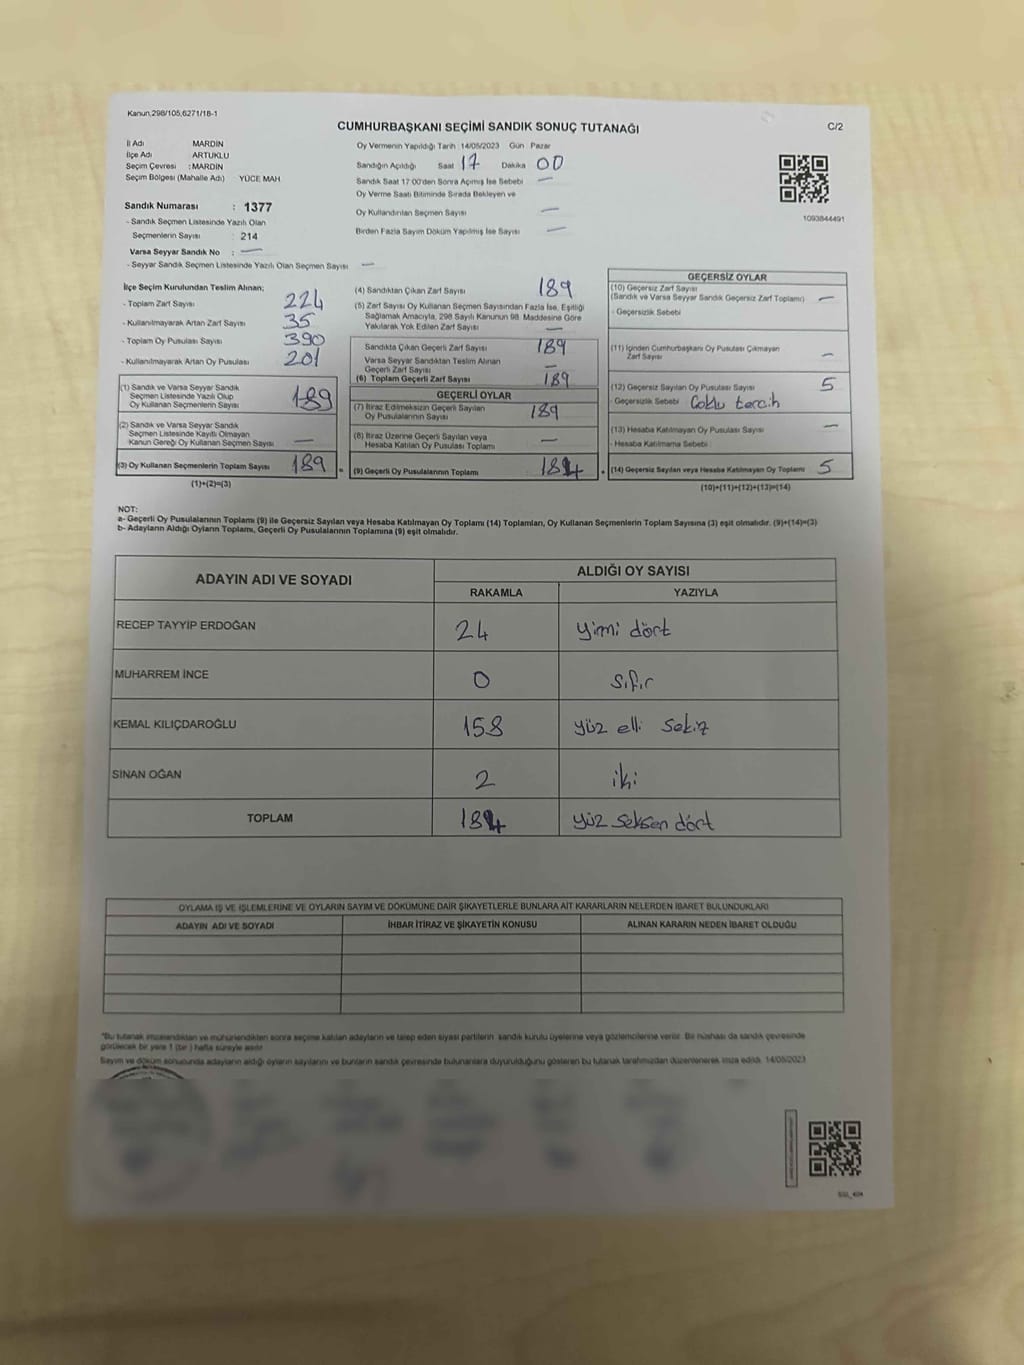 Kanun,298/105,6271/18-1
CUMHURBAŞKANI SEÇİMİ SANDIK SONUÇ TUTANAĞI
C/2
İl Adı MARDİN
İlçe Adı ARTUKLU
Seçim Çevresi : MARDİN
Seçim Bölgesi (Mahalle Adı) YÜCE MAH
Sandık Numarası : 1377
- Sandık Seçmen Listesinde Yazılı Olan
Seçmenlerin Sayısı : 214
Varsa Seyyar Sandık No : —
- Seyyar Sandık Seçmen Listesinde Yazılı Olan Seçmen Sayısı —
Oy Vermenin Yapıldığı Tarih 14/05/2023 Gün Pazar
Sandığın Açıldığı Saat 17 Dakika 00
Sandık Saat 17:00'den Sonra Açımış İse Sebebi —
Oy Verme Saati Bitiminde Sırada Bekleyen ve
Oy Kullandırılan Seçmen Sayısı —
Birden Fazla Sayım Döküm Yapılmış İse Sayısı —
1093844491
İlçe Seçim Kurulundan Teslim Alınan;
- Toplam Zarf Sayısı 224
- Kullanılmayarak Artan Zarf Sayısı 35
- Toplam Oy Pusulası Sayısı 390
- Kullanılmayarak Artan Oy Pusulası 201
(1) Sandık ve Varsa Seyyar Sandık
Seçmen Listesinde Yazılı Olup
Oy Kullanan Seçmenlerin Sayısı 189
(2) Sandık ve Varsa Seyyar Sandık
Seçmen Listesinde Kayıtlı Olmayan
Kanun Gereği Oy Kullanan Seçmen Sayısı —
(3) Oy Kullanan Seçmenlerin Toplam Sayısı 189
(1)+(2)=(3)
(4) Sandıktan Çıkan Zarf Sayısı 189
(5) Zarf Sayısı Oy Kullanan Seçmen Sayısından Fazla İse, Eşitliği
Sağlamak Amacıyla, 298 Sayılı Kanunun 98. Maddesine Göre
Yakılarak Yok Edilen Zarf Sayısı —
Sandıkta Çıkan Geçerli Zarf Sayısı 189
Varsa Seyyar Sandıktan Teslim Alınan
Geçerli Zarf Sayısı —
(6) Toplam Geçerli Zarf Sayısı 189
GEÇERLİ OYLAR
(7) İtiraz Edilmeksizin Geçerli Sayılan
Oy Pusulalarının Sayısı 189
(8) İtiraz Üzerine Geçerli Sayılan veya
Hesaba Katılan Oy Pusulası Toplamı —
= (9) Geçerli Oy Pusulalarının Toplamı 184 +
GEÇERSİZ OYLAR
(10) Geçersiz Zarf Sayısı
(Sandık ve Varsa Seyyar Sandık Geçersiz Zarf Toplamı) —
- Geçersizlik Sebebi
(11) İçinden Cumhurbaşkanı Oy Pusulası Çıkmayan
Zarf Sayısı —
(12) Geçersiz Sayılan Oy Pusulası Sayısı 5
- Geçersizlik Sebebi Çoklu tercih
(13) Hesaba Katılmayan Oy Pusulası Sayısı —
- Hesaba Katılmama Sebebi
(14) Geçersiz Sayılan veya Hesaba Katılmayan Oy Toplamı 5
(10)+(11)+(12)+(13)=(14)
NOT:
a- Geçerli Oy Pusulalarının Toplamı (9) ile Geçersiz Sayılan veya Hesaba Katılmayan Oy Toplamı (14) Toplamları, Oy Kullanan Seçmenlerin Toplam Sayısına (3) eşit olmalıdır. (9)+(14)=(3)
b- Adayların Aldığı Oyların Toplamı, Geçerli Oy Pusulalarının Toplamına (9) eşit olmalıdır.
ADAYIN ADI VE SOYADI
ALDIĞI OY SAYISI
RAKAMLA YAZIYLA
RECEP TAYYİP ERDOĞAN 24 Yirmi dört
MUHARREM İNCE 0 Sıfır
KEMAL KILIÇDAROĞLU 158 yüz elli sekiz
SİNAN OĞAN 2 iki
TOPLAM 184 yüz seksen dört
OYLAMA İŞ VE İŞLEMLERİNE VE OYLARIN SAYIM VE DÖKÜMÜNE DAİR ŞİKAYETLERLE BUNLARA AİT KARARLARIN NELERDEN İBARET BULUNDUKLARI
ADAYIN ADI VE SOYADI İHBAR İTİRAZ VE ŞİKAYETİN KONUSU ALINAN KARARIN NEDEN İBARET OLDUĞU
*Bu tutanak imzalandıktan ve mühürlendikten sonra seçime katılan adayların ve talep eden siyasi partilerin sandık kurulu üyelerine veya gözlemcilerine verilir. Bir nüshası da sandık çevresinde
görülecek bir yere 1 (bir ) hafta süreyle asılır
Sayım ve döküm sonucunda adayların aldığı oyların sayılarını ve bunların sandık çevresinde bulunanlara duyurulduğunu gösteren bu tutanak tarafımızdan düzenlenerek imza edildi. 14/05/2023